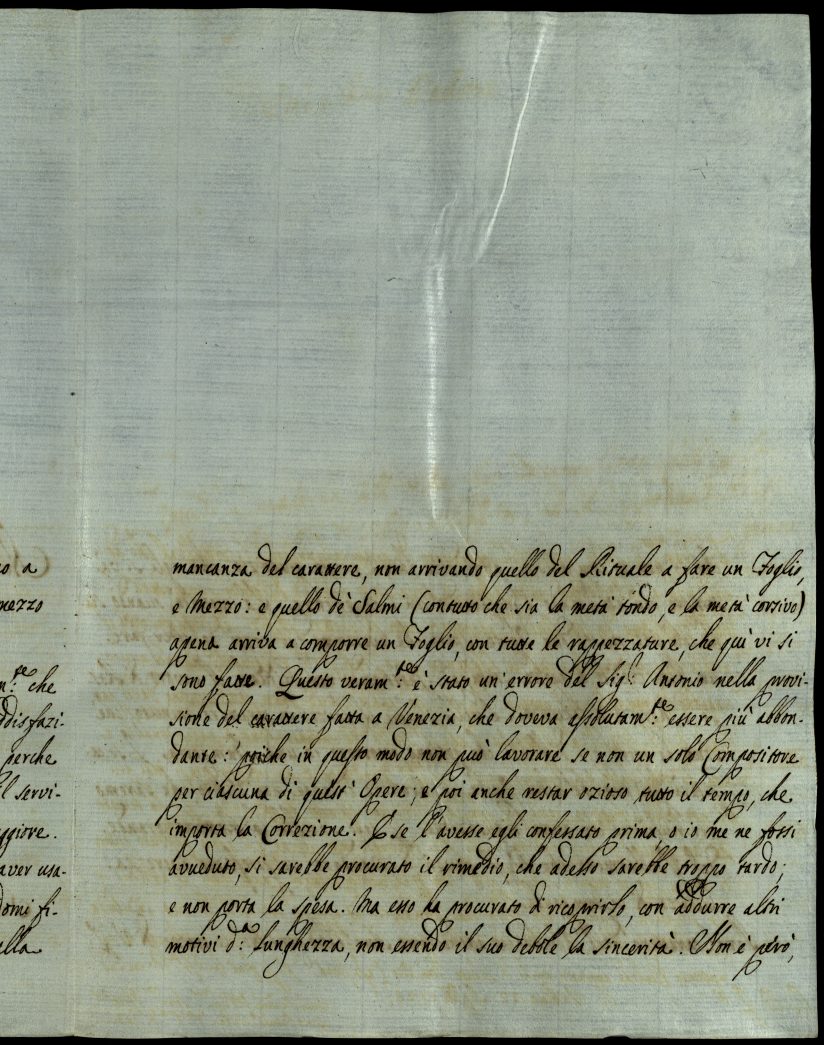 o a
mezzo
m.te che
ddisfazi-
perche
l servi-
ggiore.
aver usa-
domi fi-
ella
mancanza del carattere, non arrivando quello del Rituale a fare un Foglio,
e Mezzo: e quello de' Salmi (contutto che sia la metà tondo, e la metà corsivo)
apena arriva a comporre un Foglio, con tutte le rappezzature, che quì vi si
sono fatte. Questo veram.te è stato un' errore del Sig.r Antonio nella provi-
sione del carattere fatta a Venezia, che doveva assolutam.te essere più abbon-
dante: poiche in questo modo non può lavorare se non un solo Compositore
per ciascuna di quest' Opere; e poi anche restar ozioso tutto il tempo, che
importa la Correzione. E se l'avesse egli confessato prima, o io me ne fossi
avveduto, si sarebbe procurato il rimedio, che adesso sarebbe troppo tardo;
e non porta la spesa. Ma esso ha procurato di ricoprirlo, con addurre altri
motivi d.a lunghezza, non essendo il suo debole la sincerità. Non è però,